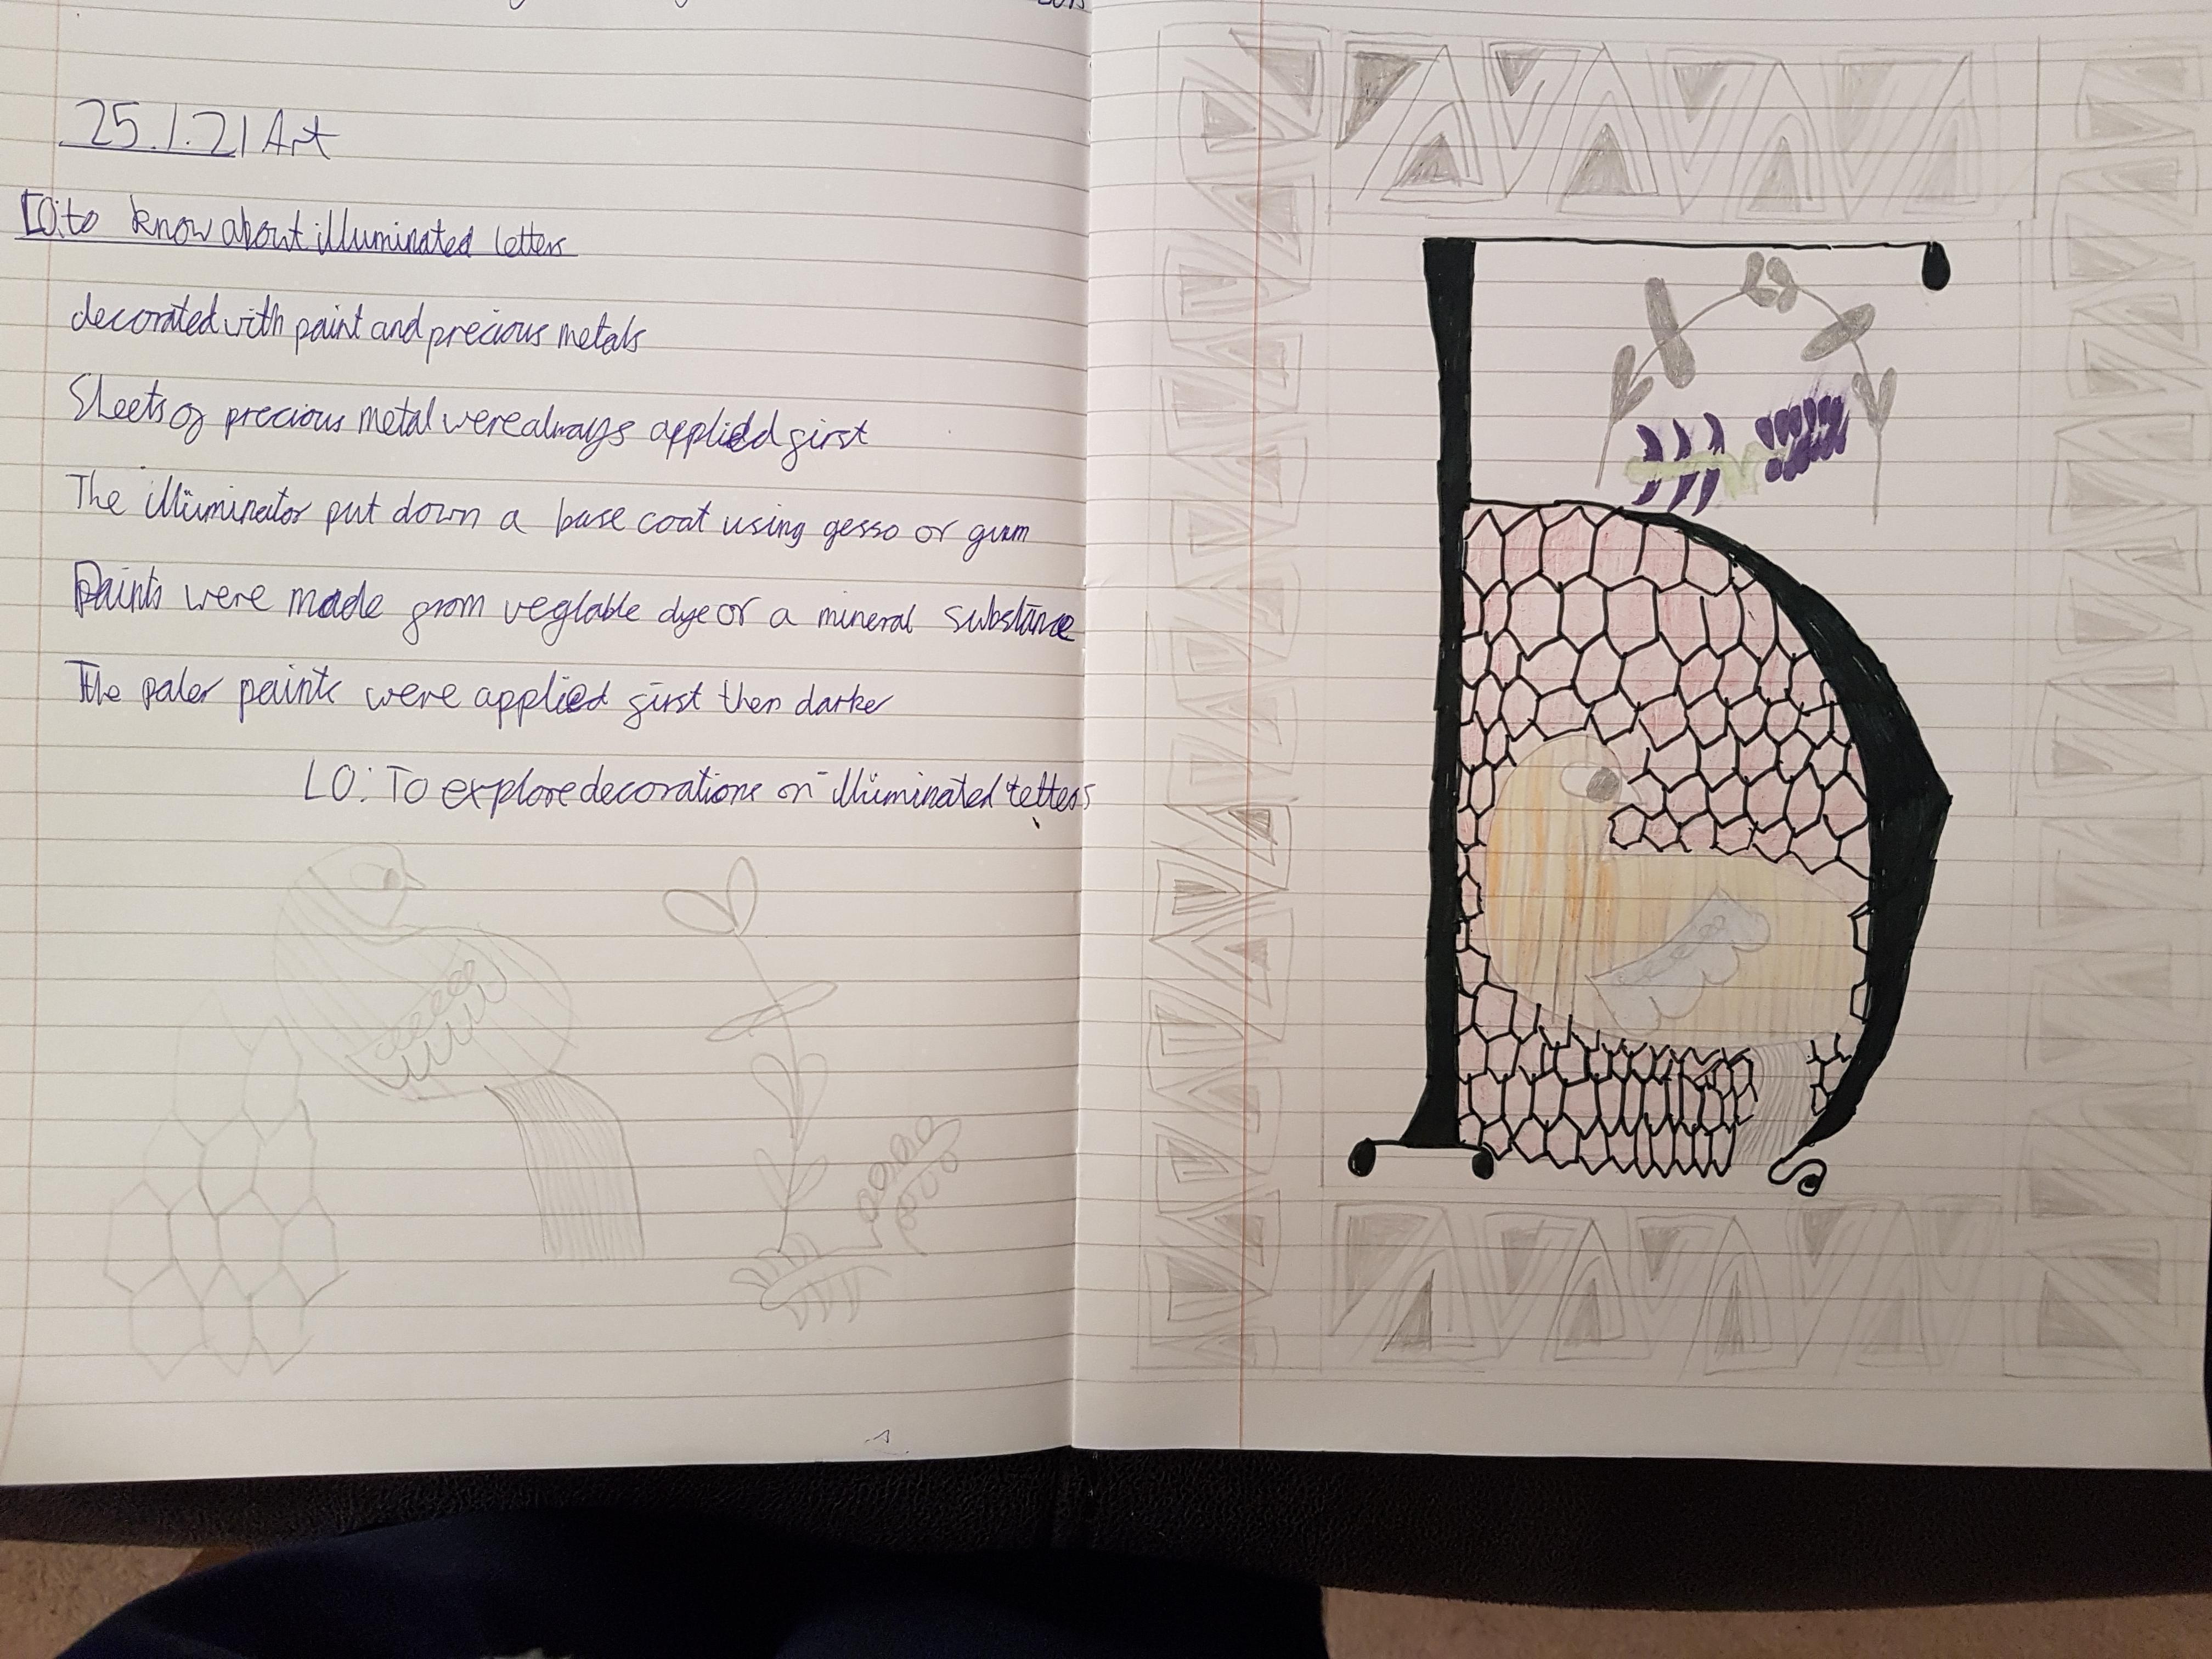 25.1.21 Art
LO: to know about illuminated letters
decorated with paint and precious metals
Sheets of precious metal were always applied first
The illuminator put down a base coat using gesso or gum
Paints were made from vegtable dye or a mineral substance
The paler paints were applied first then darker
LO: To explore decorations on illuminated letters
h